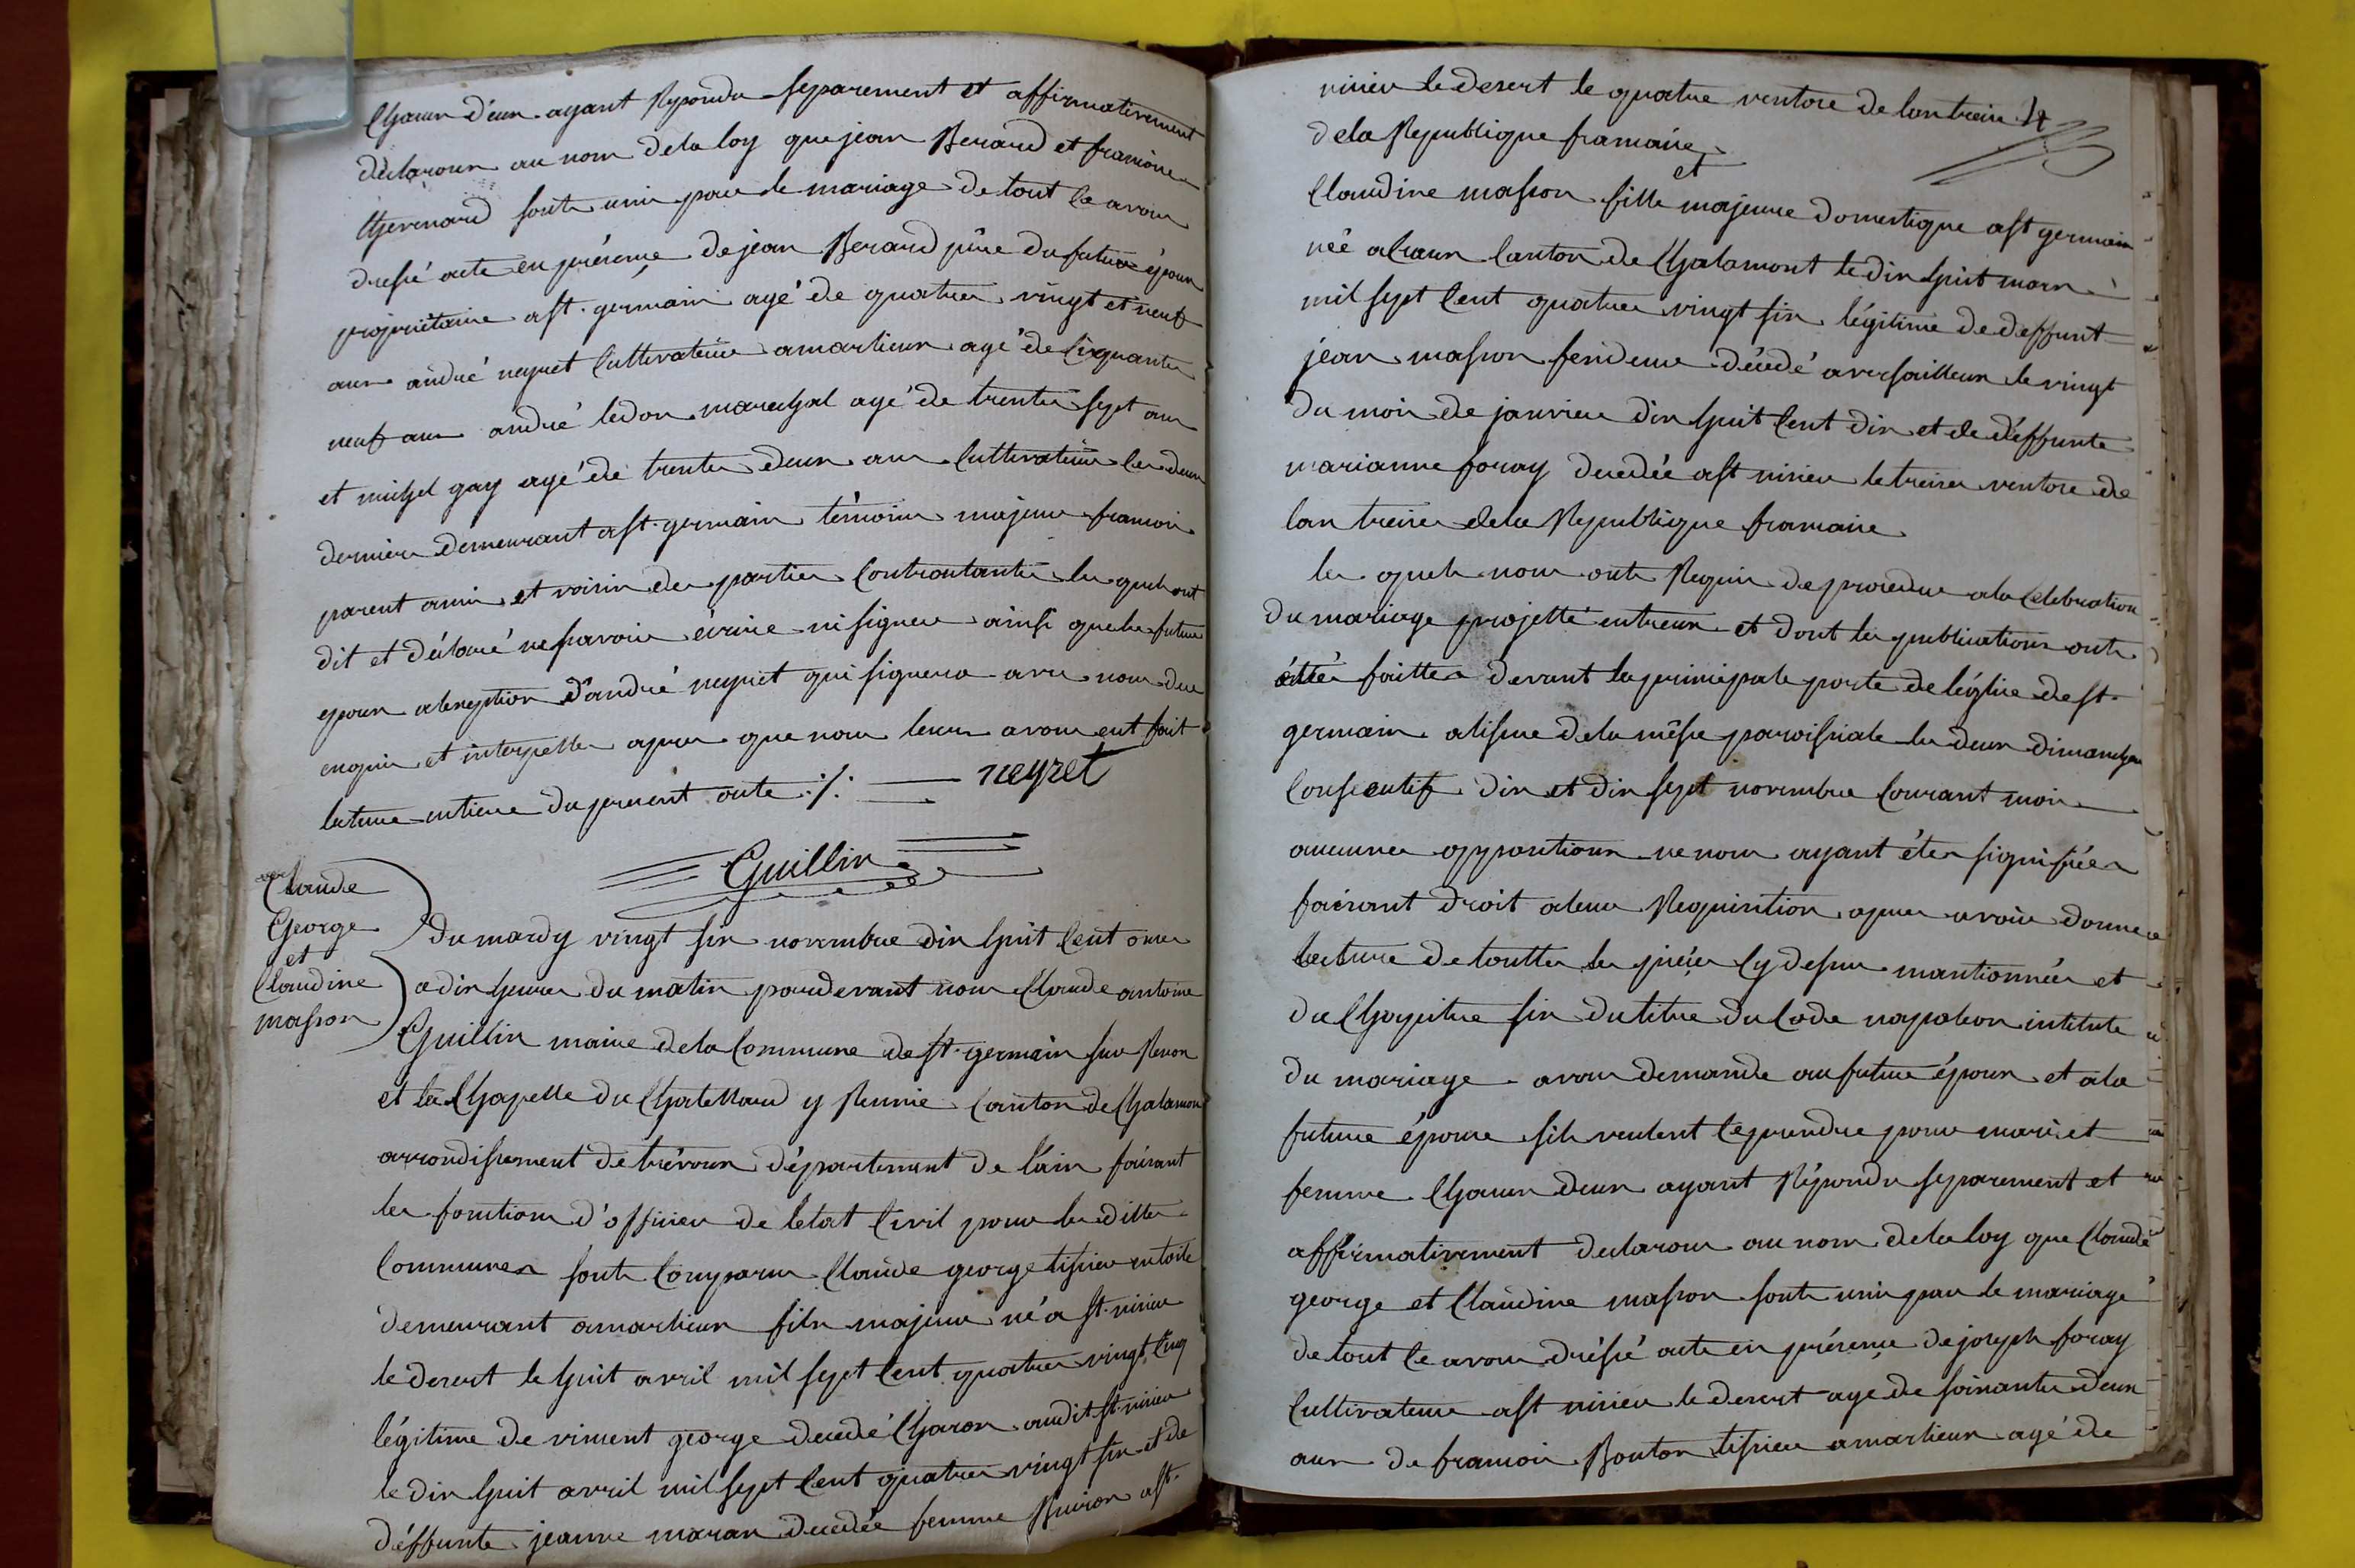 Chacun d'eux ayant Repondu separement et affirmativement
déclarons au nom de la loy que jean Berard et francoise
Chevenard sont unis par le mariage de tout ce avons
dressé acte en présence de jean Berard père du futur époux
propriétaire a st. germain agé de quatre vingt et neuf
ans andré neyret Cultivateur a marlieux agé de cinquante
neuf ans andré ledon marechal agé de trente sept ans
et michel gay agé de trente deux ans Cultivateur les deux
derniers demeurant a st. germain témoins majeurs francois
parent amis et voisin des parties Contractantes les quels ont
dit et déclaré ne savoir écrire ni signer ainsi que les futurs
epoux a lexeption d'andré neyret qui signera avec nous de ce
enquis et interpellés apres que nous leurs avons eut fait
lecture entiere du present acte ./. neyret
Guillin
Claude
George
et
Claudine
masson
Du mardy vingt six novembre dix huit Cent onze
a dix heures du matin pardevant nous Claude antoine
Guillin maire de la Commune de st. germain sur Renon
et la Chapelle du Chatellard y Reunie Canton de Chalamon
arrondissement de trévoux département de l'ain faisant
les fonctions d'officier de letat Civil pour les dittes
Communes sont Comparus Claude george tissier en toile
demeurant a marlieux fils majeur né a st. nizier
le desert le huit avril mil sept Cent quatre vingt Cinq
légitime de vincent george decedé Charon audit st. nizier
le dix huit avril mil sept Cent quatre vingt six et de
déffunte jeanne maran decedée femme Buiron a st.
nizier le desert le quatre ventose de lan treize
de la Republique francaise
et
Claudine masson fille majeure domestique a st germain
née a Crans Canton de Chalamont le dix huit mars
mil sept Cent quatre vingt six légitime de deffunt
jean masson fendeur décédé a versailleux le vingt
du mois de janvier dix huit Cent dix et de déffunte
marianne foray decedée a st nizier le treize ventose de
lan treize de la Republique francaise
les quels nous ont Requis de proceder a la Celebration
du mariage projetté entreux et dont les publications ont
étées faittes devant la principale porte de léglise de st.
germain a lissue de la mésse paroissiale les deux dimanches
Consecutifs dix et dix sept novembre Courant mois
aucunes oppositions ne nous ayant étés signifiées
faisant droit a leur Requisition apres avoir donnee
lecture de touttes les pièces Cy dessus mantionnées et
du Chapitre six du titre du Code napoleon intitulé
du mariage avons demande au futur époux et a la
future épouse sils veulent se prendre pour mari et
femme Chacun deux ayant Répondu separement et
affirmativement declarons au nom de la loy que Claude
george et Claudine masson sont unis par le mariage
de tout ce avons dréssé acte en présence de joseph foray
Cultivateur a st nizier le desert agé de soixante deux
ans de francois Bouton tissier a marlieux agé de